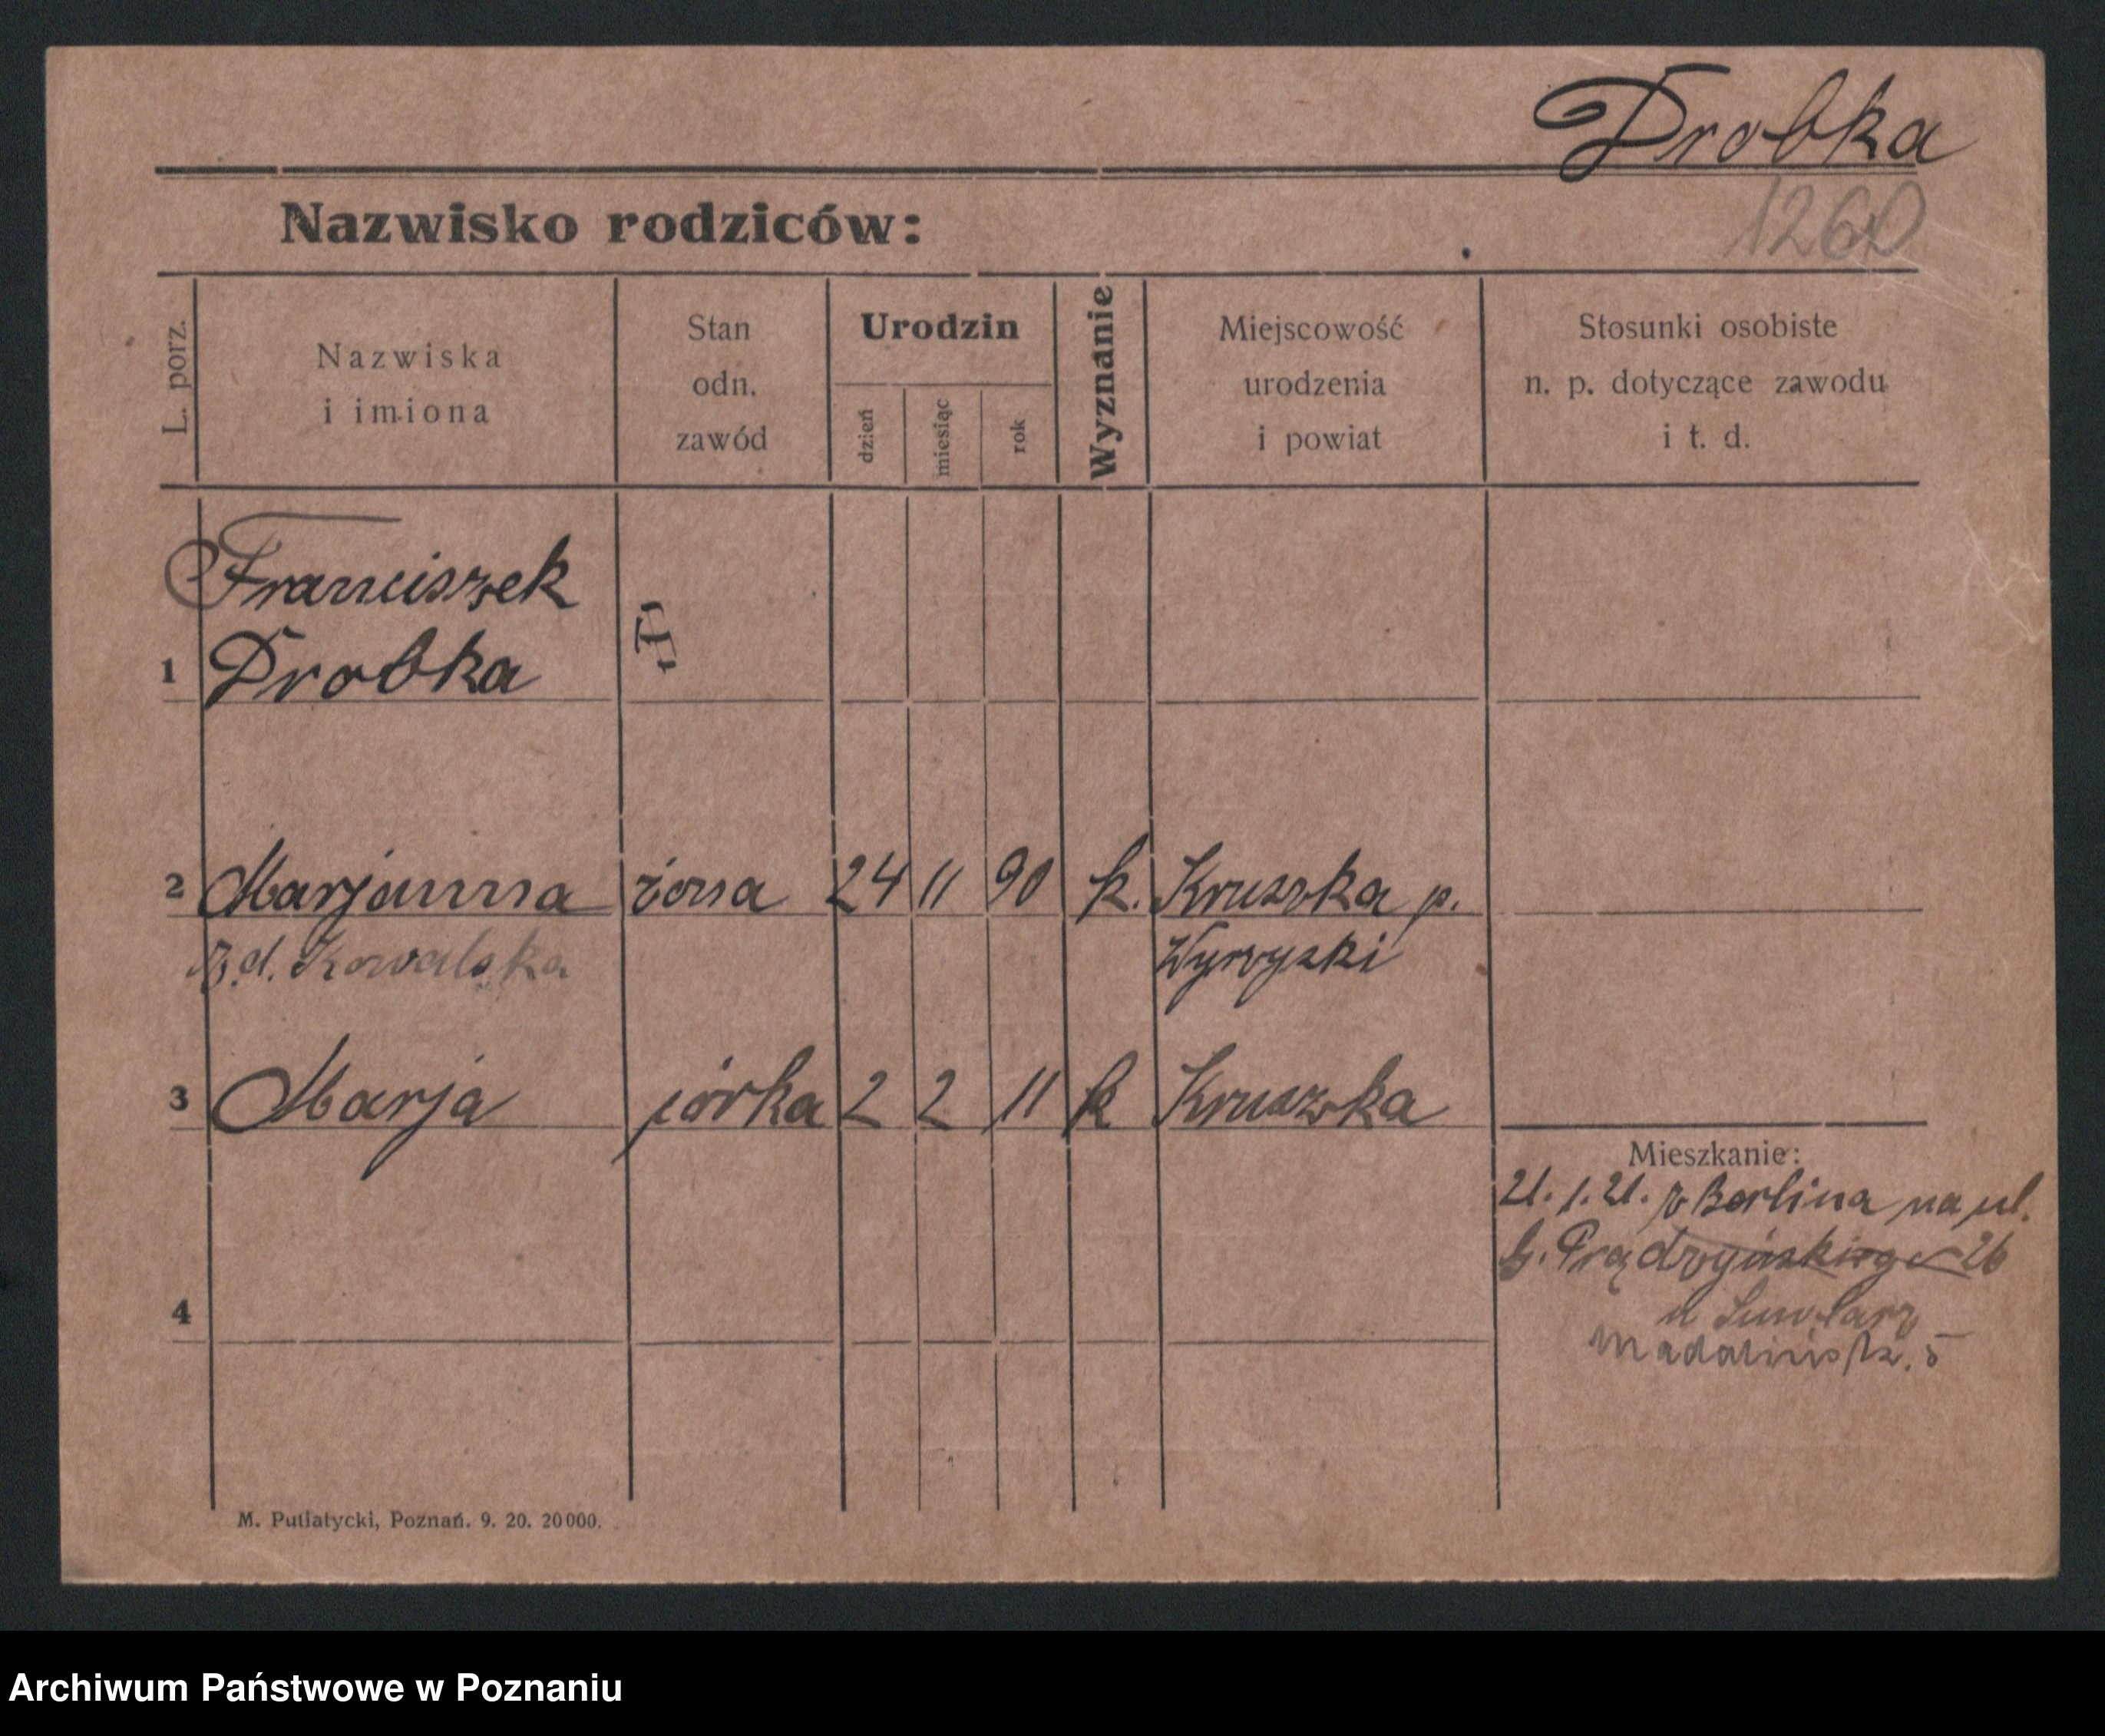 Drobka
1260
Nazwisko rodziców:
L. porz.
Nazwiska
i imiona
Stan
odn.
zawód
Urodzin
dzień
miesiąc
rok
Wyznanie
Miejscowość
urodzenia
i powiat
Stosunki osobiste
n. p. dotyczące zawodu
i t. d.
Franciszek
1 Drobka
2 Marjanna żona 24 11 90 k. Kruszka p.
z d. Kowalska Wyrzyski
3 Marja córka 2 2 11 k Kruszka
Mieszkanie:
21. 1. 21. z Berlina na ul.
G. Prądzyńskiego 26
u
Madalińsk. 5
4
M. Putiatycki, Poznań. 9. 20. 20000.
Archiwum Państwowe w Poznaniu